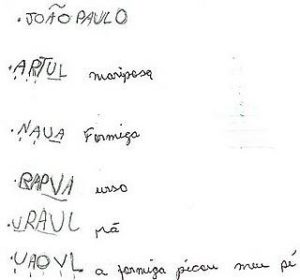 .JOÃO PAULO
.ARTUL mariposa
.NAUA Formiga
.RAPVA urso
.URAUL rã
.UAOVL a formiga picou meu pé